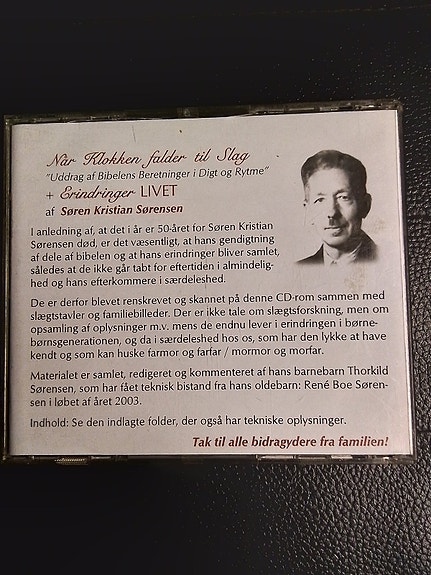 Når Klokken falder til Slag
"Uddrag af Bibelens Beretninger i Digt og Rytme"
+ Erindringer LIVET
af Søren Kristian Sørensen
I anledning af, at det i år er 50-året for Søren Kristian
Sørensen død, er det væsentligt, at hans gendigtning
af dele af bibelen og at hans erindringer bliver samlet,
således at de ikke går tabt for eftertiden i almindelig-
hed og hans efterkommere i særdeleshed.
De er derfor blevet renskrevet og skannet på denne CD-rom sammen med
slægtstavler og familiebilleder. Der er ikke tale om slægtsforskning, men om
opsamling af oplysninger m.v. mens de endnu lever i erindringen i børne-
børnsgenerationen, og da i særdeleshed hos os, som har den lykke at have
kendt og som kan huske farmor og farfar / mormor og morfar.
Materialet er samlet, redigeret og kommenteret af hans barnebarn Thorkild
Sørensen, som har fået teknisk bistand fra hans oldebarn: René Boe Søren-
sen i løbet af året 2003.
Indhold: Se den indlagte folder, der også har tekniske oplysninger.
Tak til alle bidragydere fra familien!